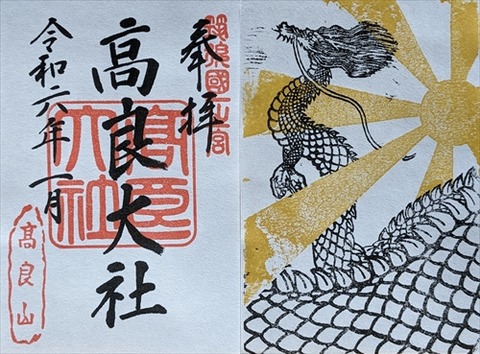 奉拝
筑後國一之宮
高良大社
高良大社
令和六年一月
髙良山